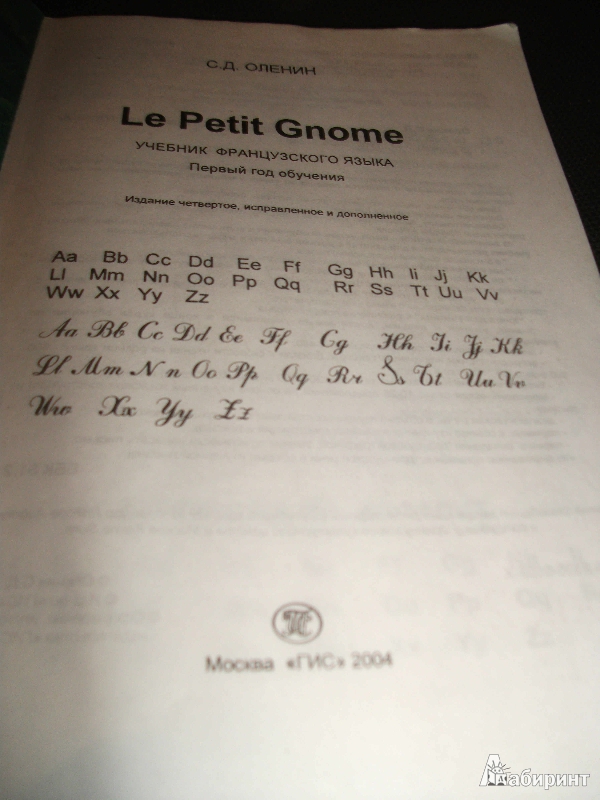 С.Д. ОЛЕНИН
Le Petit Gnome
УЧЕБНИК ФРАНЦУЗСКОГО ЯЗЫКА
Первый год обучения
Издание четвертое, исправленное и дополненное
Aa Bb Cc Dd Ee Ff Gg Hh Ii Jj Kk
Ll Mm Nn Oo Pp Qq Rr Ss Tt Uu Vv
Ww Xx Yy Zz
Aa Bb Cc Dd Ee Ff Gg Hh Ii Jj Kk
Ll Mm Nn Oo Pp Qq Rr Ss Tt Uu Vv
Ww Xx Yy Zz
Москва «ГИС» 2004
Лабиринт